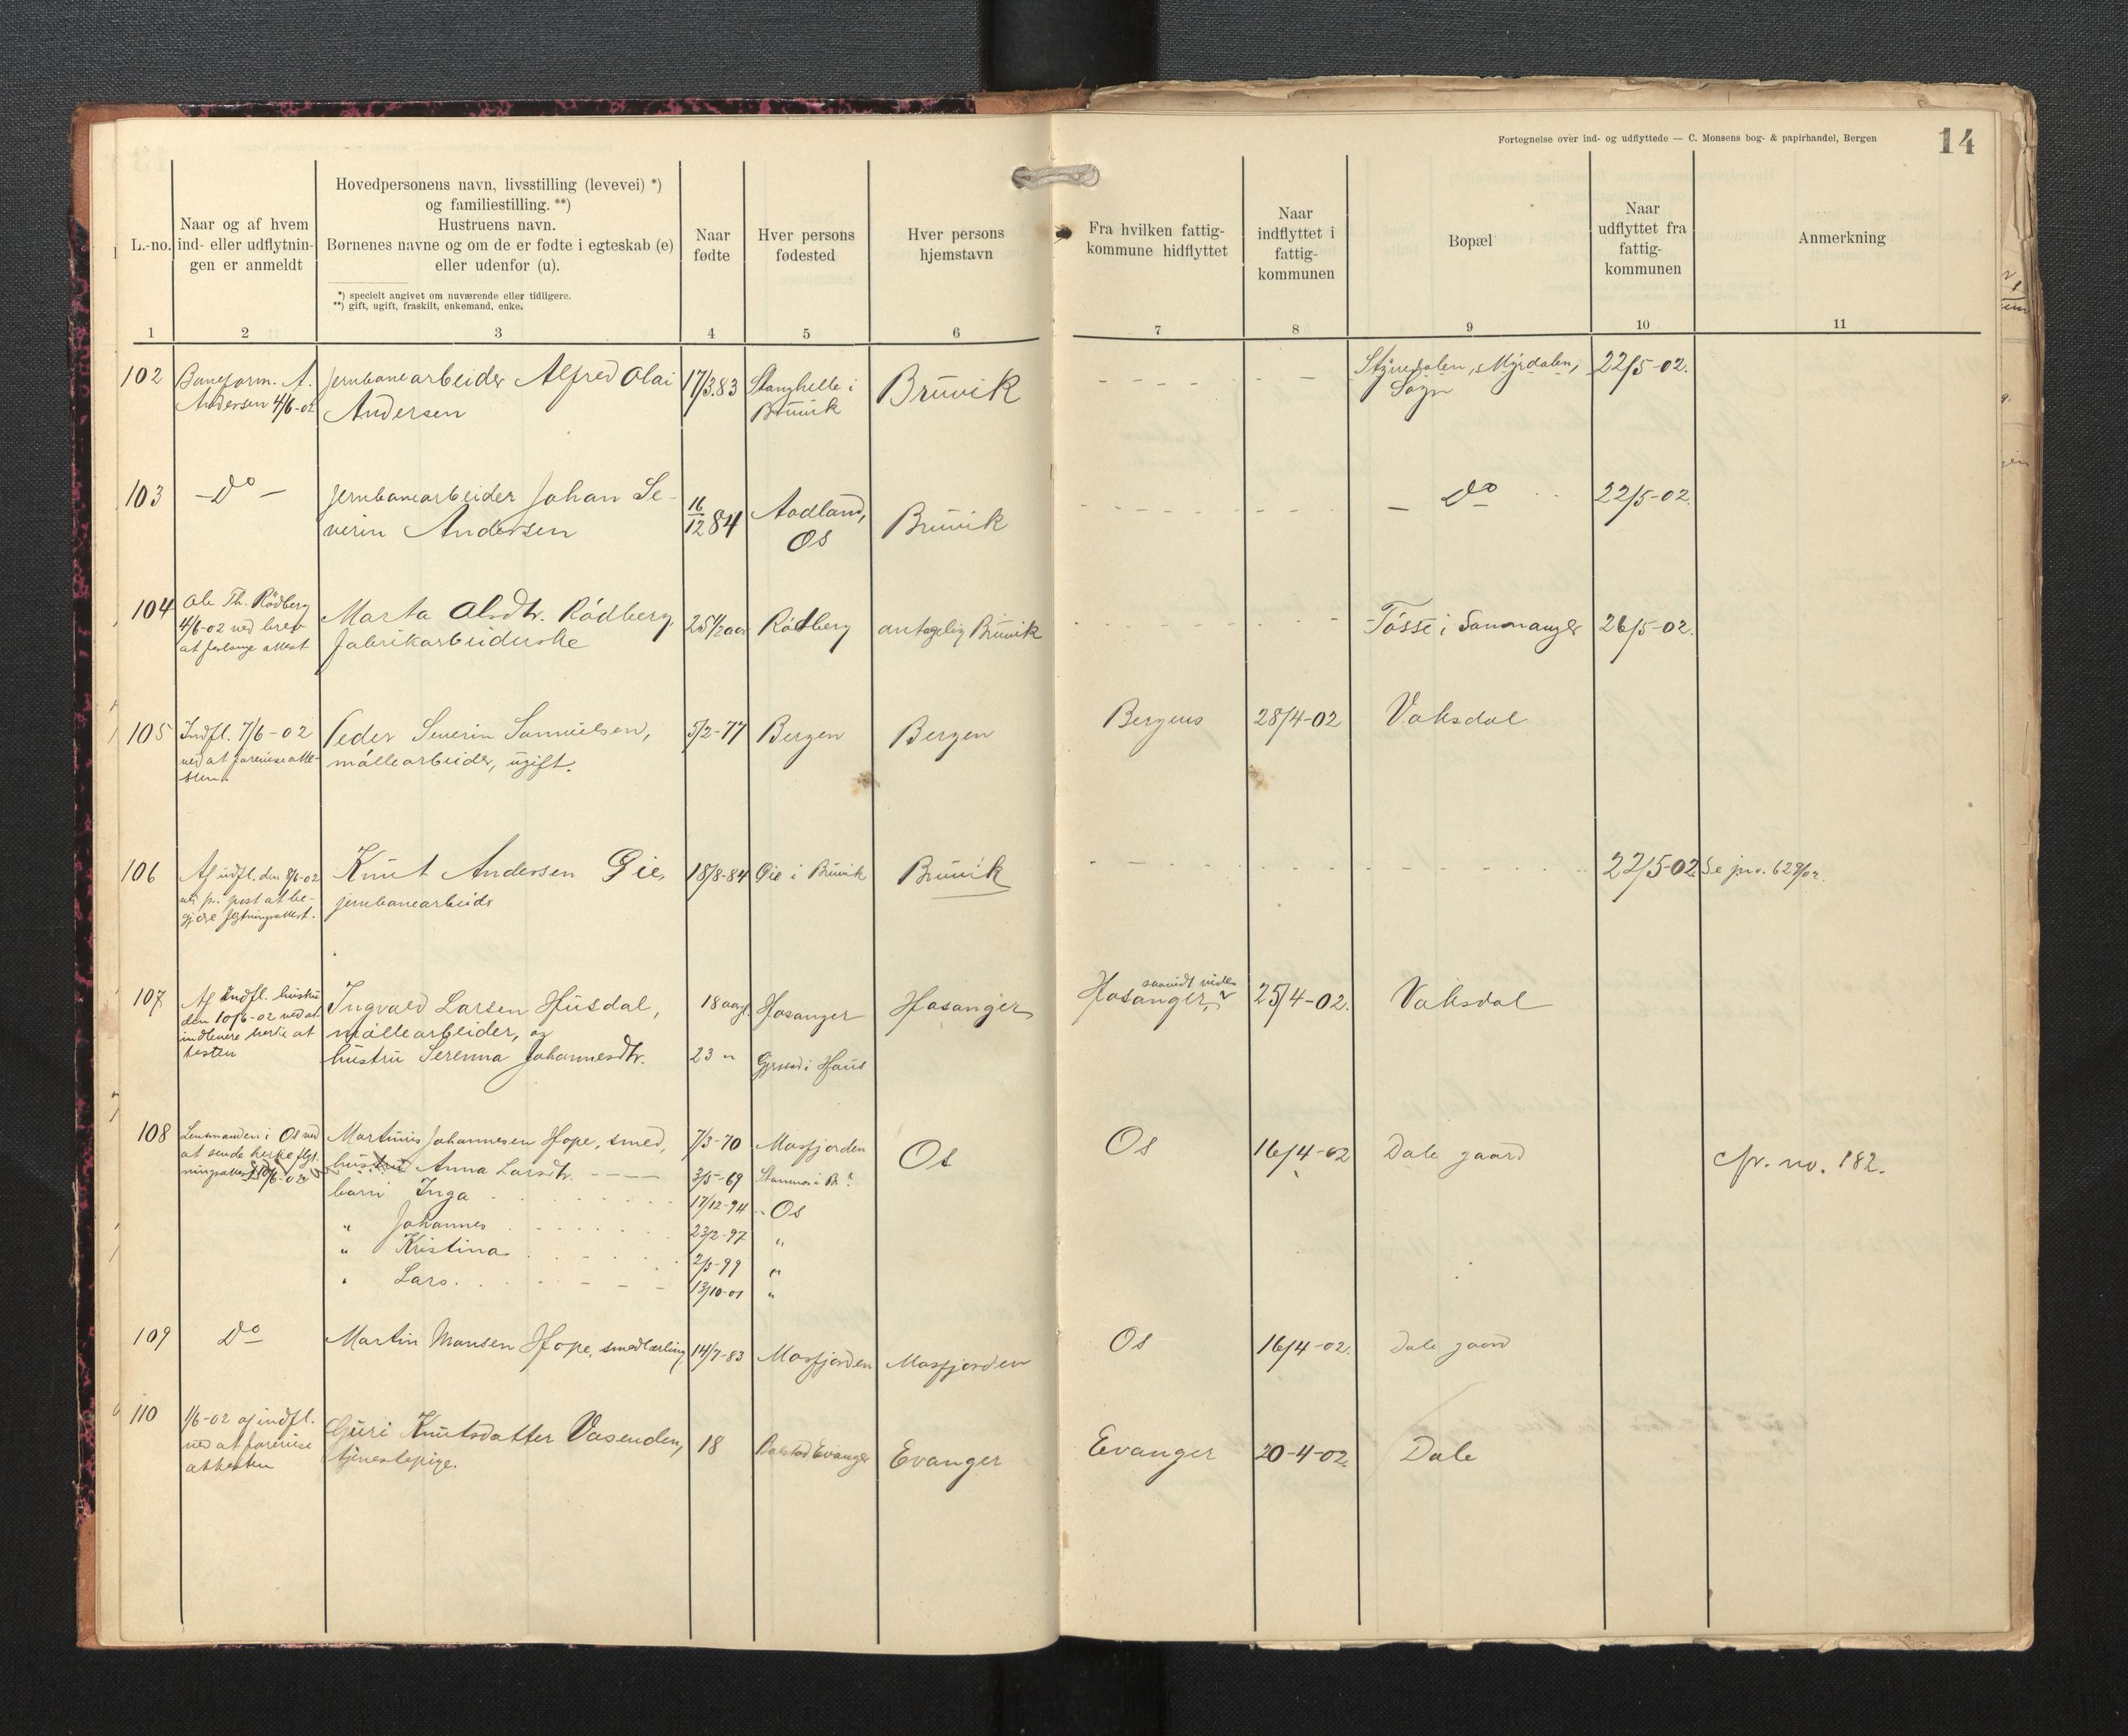 Fortegnelse over ind- og udflyttede — C. Monsens bog- & papirhandel, Bergen
14
L.-no.
Naar og af hvem
ind- eller udflytnin-
gen er anmeldt
Hovedpersonens navn, livsstilling (levevei) *)
og familiestilling. **)
Hustruens navn.
Børnenes navne og om de er fødte i egteskab (e)
eller udenfor (u).
*) specielt angivet om nuværende eller tidligere.
**) gift, ugift, fraskilt, enkemand, enke.
Naar
fødte
Hver persons
fødested
Hver persons
hjemstavn
Fra hvilken fattig-
kommune hidflyttet
Naar
indflyttet i
fattig-
kommunen
Bopæl
Naar
udflyttet fra
fattig-
kommunen
Anmerkning
1 2 3 4 5 6 7 8 9 10 11
102
Baneform. A.
Andersen 4/6-02
Jernbanearbeider Alfred Olai
Andersen
17/3.83
Stanghelle i
Bruvik
Bruvik
Myrdalen,
Sogn
22/5-02.
103
— Do —
Jernbanearbeider Johan Se-
verin Andersen
16/12 84
Aadland,
Os
Bruvik
— Do
22/5-02.
104
Ole Th. Rödberg
4/6-02 ved brev
at forlange attest
Marta Olsdtr. Rödberg,
fabrikarbeiderske
25 1/2 aar
Rödberg
antagelig Bruvik
Tösse i Samnanger
26/5-02.
105
Indfl. 7/6-02
ved at forevise atte-
sten
Peder Severin Samuelsen,
möllearbeider, ugift.
5/2-77
Bergen
Bergen
Bergens
28/4-02
Vaksdal
106
Af udfl. den 8/6-02
ved pr. post at be-
gjöre flytningsattest.
Knut Andersen Öie,
jernbanearbeid
18/8-84
Öie i Bruvik
Bruvik
22/5-02.
Se jno. 629/02.
107
Af Indfl. hustru
den 10/6-02 ved at
indlevere hertil at
testen
Ingvald Larsen Husdal,
möllearbeider, og
hustru Serenna Johannesdtr.
18 aar
23 "
Hosanger
i Haus
Hosanger
saavidt vides
Hosanger
25/4-02.
Vaksdal
108
Lensmanden i Os ved
at sende herhid flyt-
ningsattest 10/6-02
Martinus Johannesen Hope, smed,
hustru Anna Larsdtr.
barn Inga
" Johannes
" Kristina
" Lars.
7/3-70
3/5-69
17/12-94
23/2-97
2/5-99
13/10-01
Masfjorden
Stamnes i Br ?
Os
"
"
"
Os
Os
16/4-02
Dale gaard
cfr. no. 182.
109
Do
Martin Monsen Hope, smedlærling
14/7-83
Masfjorden
Masfjorden
Os
16/4-02.
Dale gaard
110
1/6-02 af indfl.
ved at forevise
attesten
Guri Knutsdatter Vasenden,
tjenestepige.
18
Evanger
Evanger
Evanger
20-4-02.
Dale